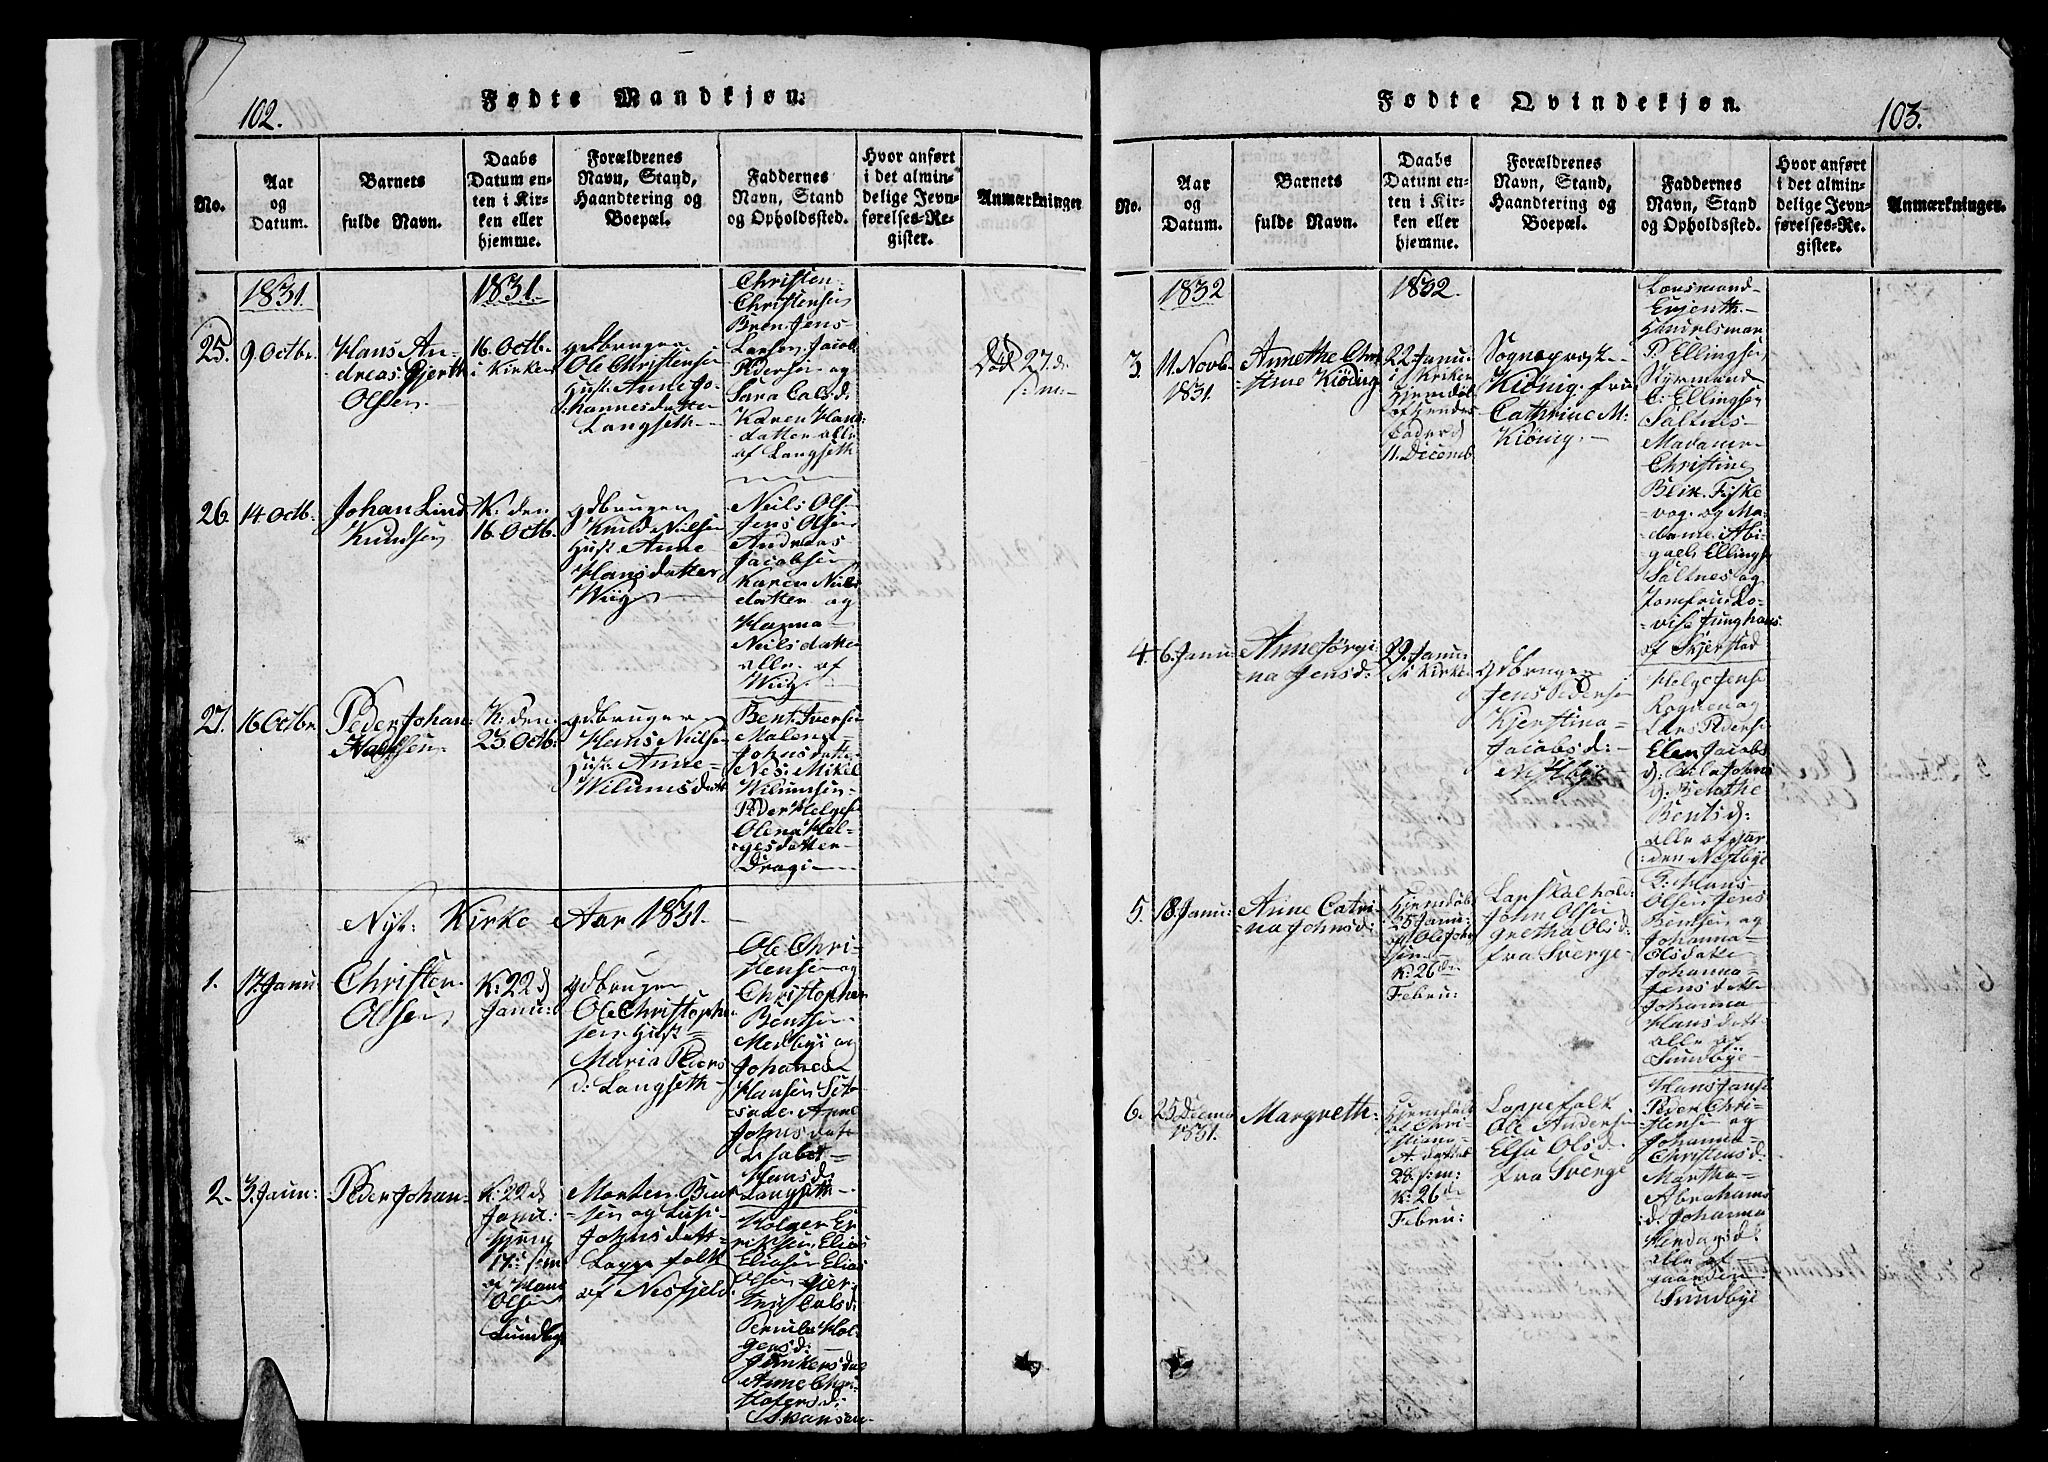 102.
Fødte Mandkjøn.
No.
Aar
og
Datum.
Barnets
fulde Navn.
Daabs
Datum en-
ten i Kir-
ken eller
hjemme.
Forældrenes
Navn, Stand,
Haandtering og
Boepæl.
Faddernes
Navn, Stand
og Opholdssted.
Hvor anført
i det almin-
delige Jevn-
førelses-Re-
gister.
Anmærkninger
1831.
1831.
25.
9. Octbr.
Hans An-
dreas Gjerth
Olsen
16. Octb.
i Kirken
gdbruger
Ole Christensen
Hust: Anne Jo-
hannesdatter
Langseth
Christen
Christensen
Jens
Larsen Jacob
Pedersen og
Sara Cals d:
Karen Hans
datter alle
af Langseth
Død 27. d.
s. m.
26.
14 Octb.
Johan Lind
Knudsen
K: den
16. Octb.
gdbruger
Knud Nilsen
Hust. Anne
Hansdatter
Wiig
Neils Ols
Jens Olsen
Andreas
Jacobsen
Karen Niels
datter og
Hanna
Neilsdatter
alle af
Wiig
27.
16 Octbr.
Peder Johan
Hansen
K: den
23 Octb:
gdbruger
Hans Nilsen
Hust: Anne
Wilumsdatt
Bent Iversen
Malena
Johnsdatter
Nes. Mikel
Wilumsen
Peder Helgese
Olena Hel-
gesdatter
Dragei
Nyt: Kirke Aar 1831.
1.
17 Janu
Christen
Olsen
K: 22 d
Janu:
gdbruger
Ole Christoph
sen Hust
Maria Peders
d: Langseth
Ole Chri-
stensen og
Christopher
Bentsen
Medbye og
Johanes
Hansen Set-
Johnsdatt
Lisabet
Hansd:
Langseth
2.
3. Janu:
Peder Johan
K: 22 d
Janu:
17. s. m.
af Hans
Olsen
Sundbye
Morten Bent
sen og Lusi
Johnsdatt
Lappe folk
af Nesfjeld
Holger Er
riksen, Elias
Eliasen Elias
Olsen Gjer
trud Cals d:
Pernila Hol-
gers d:
Anne Chri-
stofers d:
103.
Fødte Qvindekjøn.
No.
Aar
og
Datum.
Barnets
fulde Navn.
Daabs
Datum en-
ten i Kir-
ken eller
hjemme.
Forældrenes
Navn, Stand,
Haandtering og
Boepæl.
Faddernes
Navn, Stand
og Opholdssted.
Hvor anført
i det almin-
delige Jevn-
førelses-Re-
gister.
Anmærkninger.
1832
1832.
3.
11. Novb.
1831.
Annethe Chri
stine Kiönig
22 Janu:
i Kirken
Hjemdøb
af
Fader d
11. Decemb
Sogneprest
Kiönig. fru
Cathrine M:
Kiönig.
Lensmand
Handelsman
P: Ellingsen
Styrmand
C: Ellingsen
Saltnes
Madame
Christine
Blix. Fiske
vog. og Ma-
dame Abi-
gael Ellings
Saltnes og
Jomfru Lo-
vise Junghans
af Skjerstad
4.
6. Janu:
Anne Jørgi-
na Jens d:
29. Janu:
i Kirke
gdbruger
Jens Pedersen
Kjerstina
Jacobs d:
Nestbye
Helge Jense
Rognen og
Lars Peders
Elen Jacobs
d: Johns
d: Berithe
Bents d:
alle af gaar
den Nestbye
5.
18. Janu:
Anne Catri-
na Johnsd:
Hjemdøb:
25 Janu:
af Ole John
sen
K: 26 de
Febru:
Lapsk
John Olsen
Gretha Ols d:
fra Sverge
Hans
Olsen Jens
Bentsen og
Johanna
Olsdatter
Johanna
Jensdatt
Johanna
Hansdatt
alle af
Sundbye
6.
25 Decmb
1831.
Margreth
Hjemdøbt
af Chri-
stiana
A. datter
28. s: m:
K: 26 de
Febru:
Lappefolk
Ole Andersen
Elsa Ols d.
fra Sverge
Hans Janse
Peder Chri-
stensen og
Johanna
Christens d:
Martha
Abrahams
d. Johanna
alle af
gaarden
Sundbye